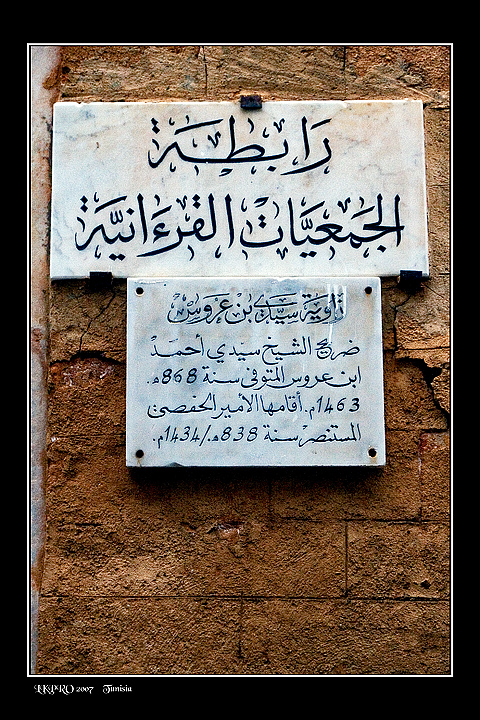 رَابطَة
الجَمعيَّاتْ القُرءَانيَّة
زاوية سيّدي بن عَروسْ
ضريح الشيخ سيّدي أحمدْ
ابن عروس المتوفى سنة 868هـ.
1463م. أقامها الأمير الحفصي
المستنصر سنة 838هـ./1434م.
LKPRO 2007 Tunisia